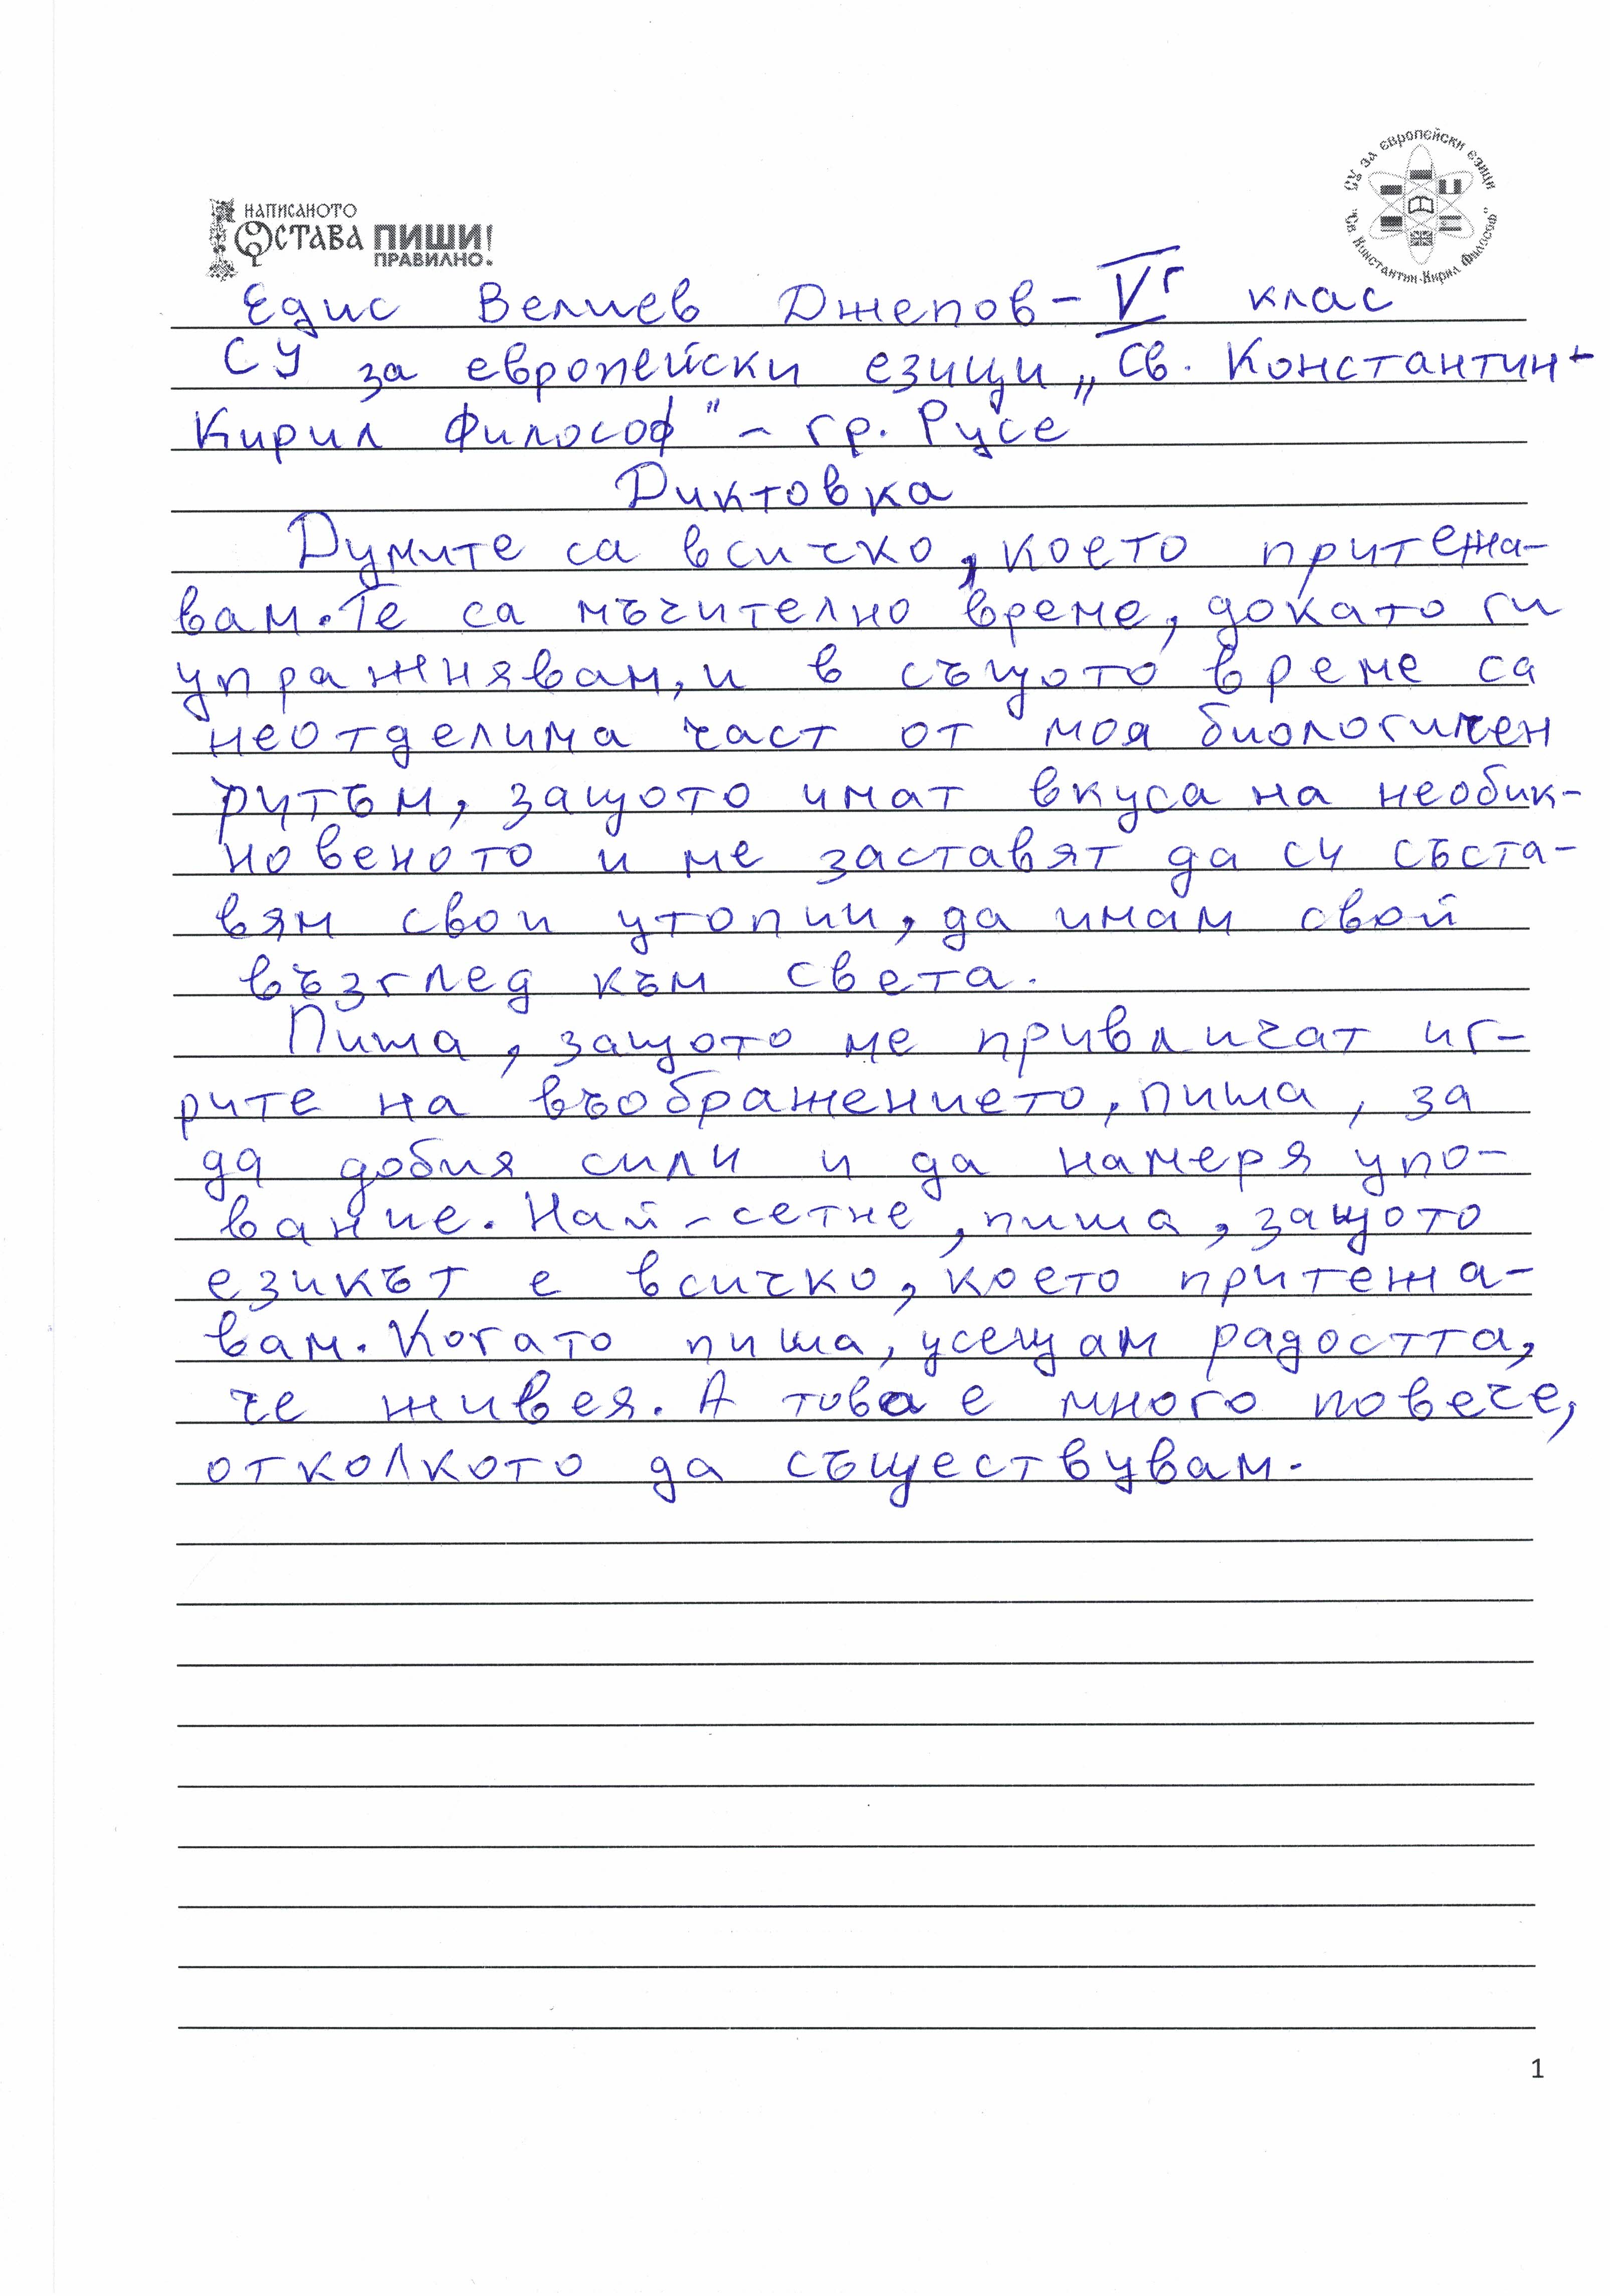 СУ за европейски езици
"Св. Константин-Кирил Философ"
НАПИСАНОТО
ОСТАВА ПИШИ!
ПРАВИЛНО.
Едис Велиев Джепов – Vг клас
СУ за европейски езици „Св. Константин-
Кирил Философ" – гр. Русе
Диктовка
Думите са всичко, което притежа-
вам. Те са мъчително време, докато ги
упражнявам, и в същото време са
неотделима част от моя биологичен
ритъм, защото имат вкуса на необик-
новеното и ме заставят да си съста-
вям свои утопии, да имам свой
възглед към света.
Пиша, защото ме привличат иг-
рите на въображението, пиша, за
да добия сили и да намеря упо-
вание. Най-сетне, пиша, защото
езикът е всичко, което притежа-
вам. Когато пиша, усещам радостта,
че живея. А това е много повече,
отколкото да съществувам.
1